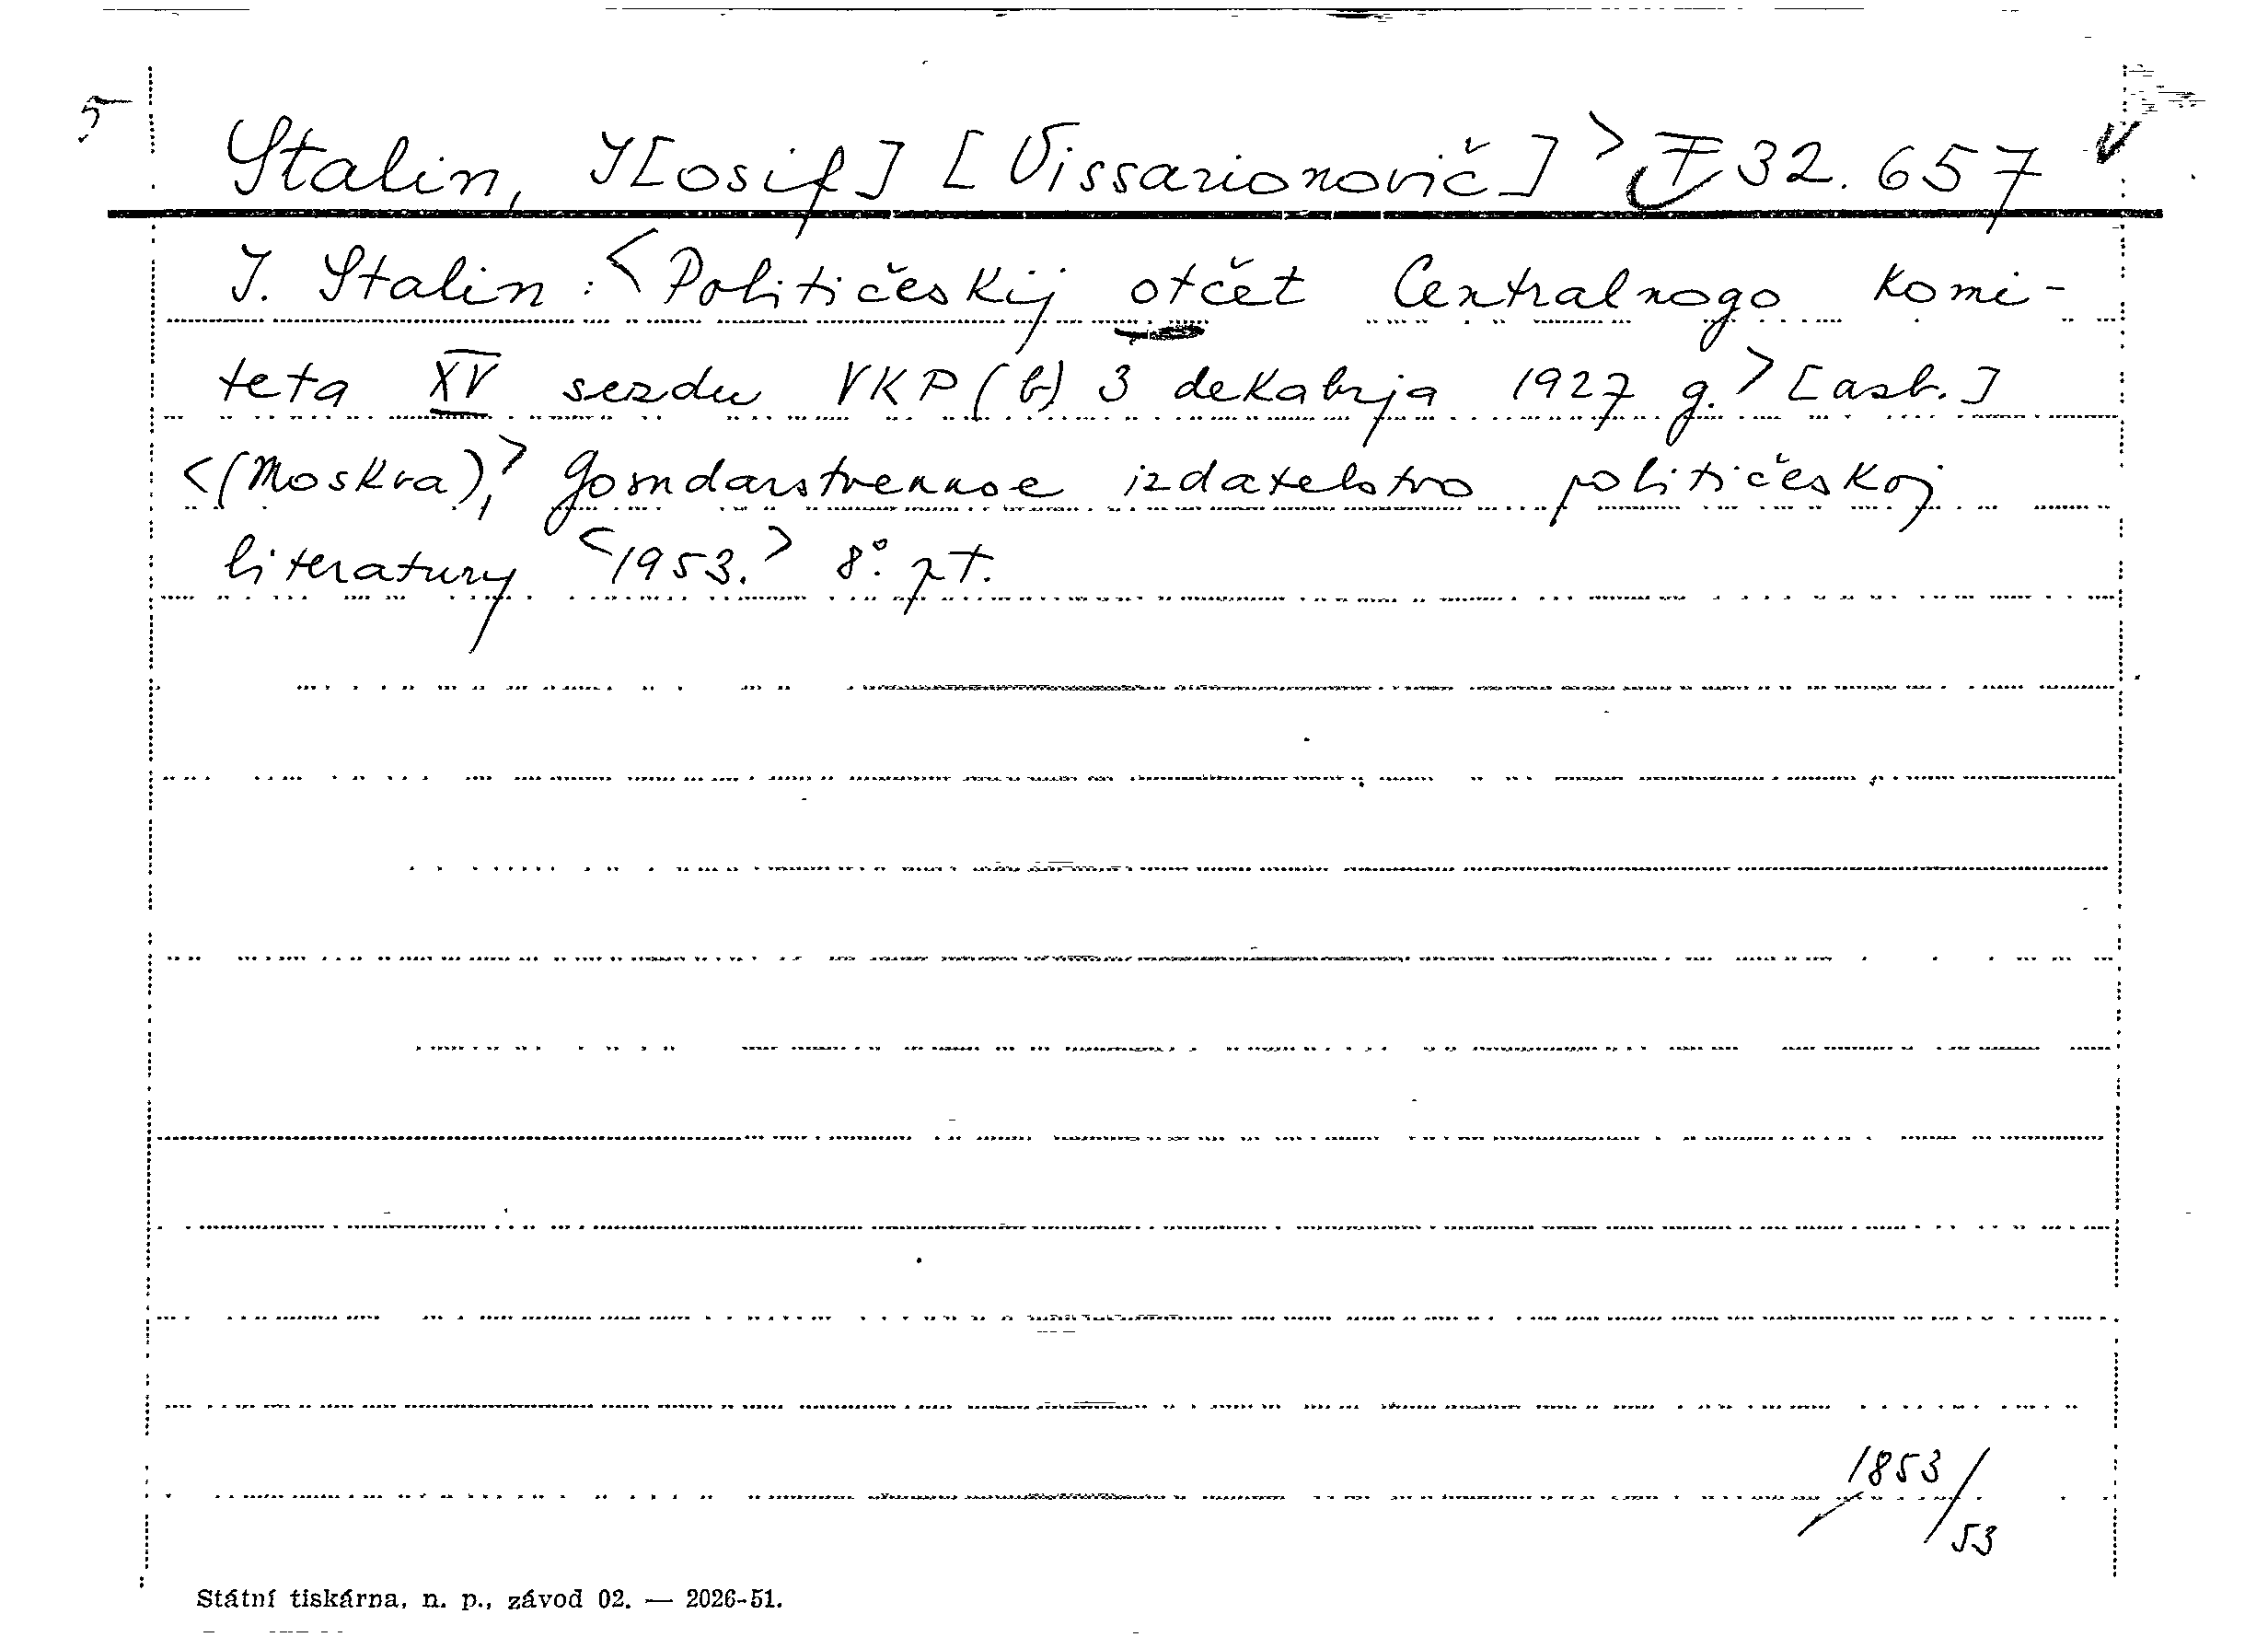 5
Stalin, J[osif] [Vissarionovič] > F 32.657
J. Stalin: <Političeskij otčet Centralnogo komi-
teta XV sezdu VKP(b) 3 dekabrja 1927 g.> [azb.]
<(Moskva),> Gosudarstvennoe izdatelstvo političeskoj
literatury <1953.> 8°. pt.
1853/53
Státní tiskárna, n. p., závod 02. — 2026-51.